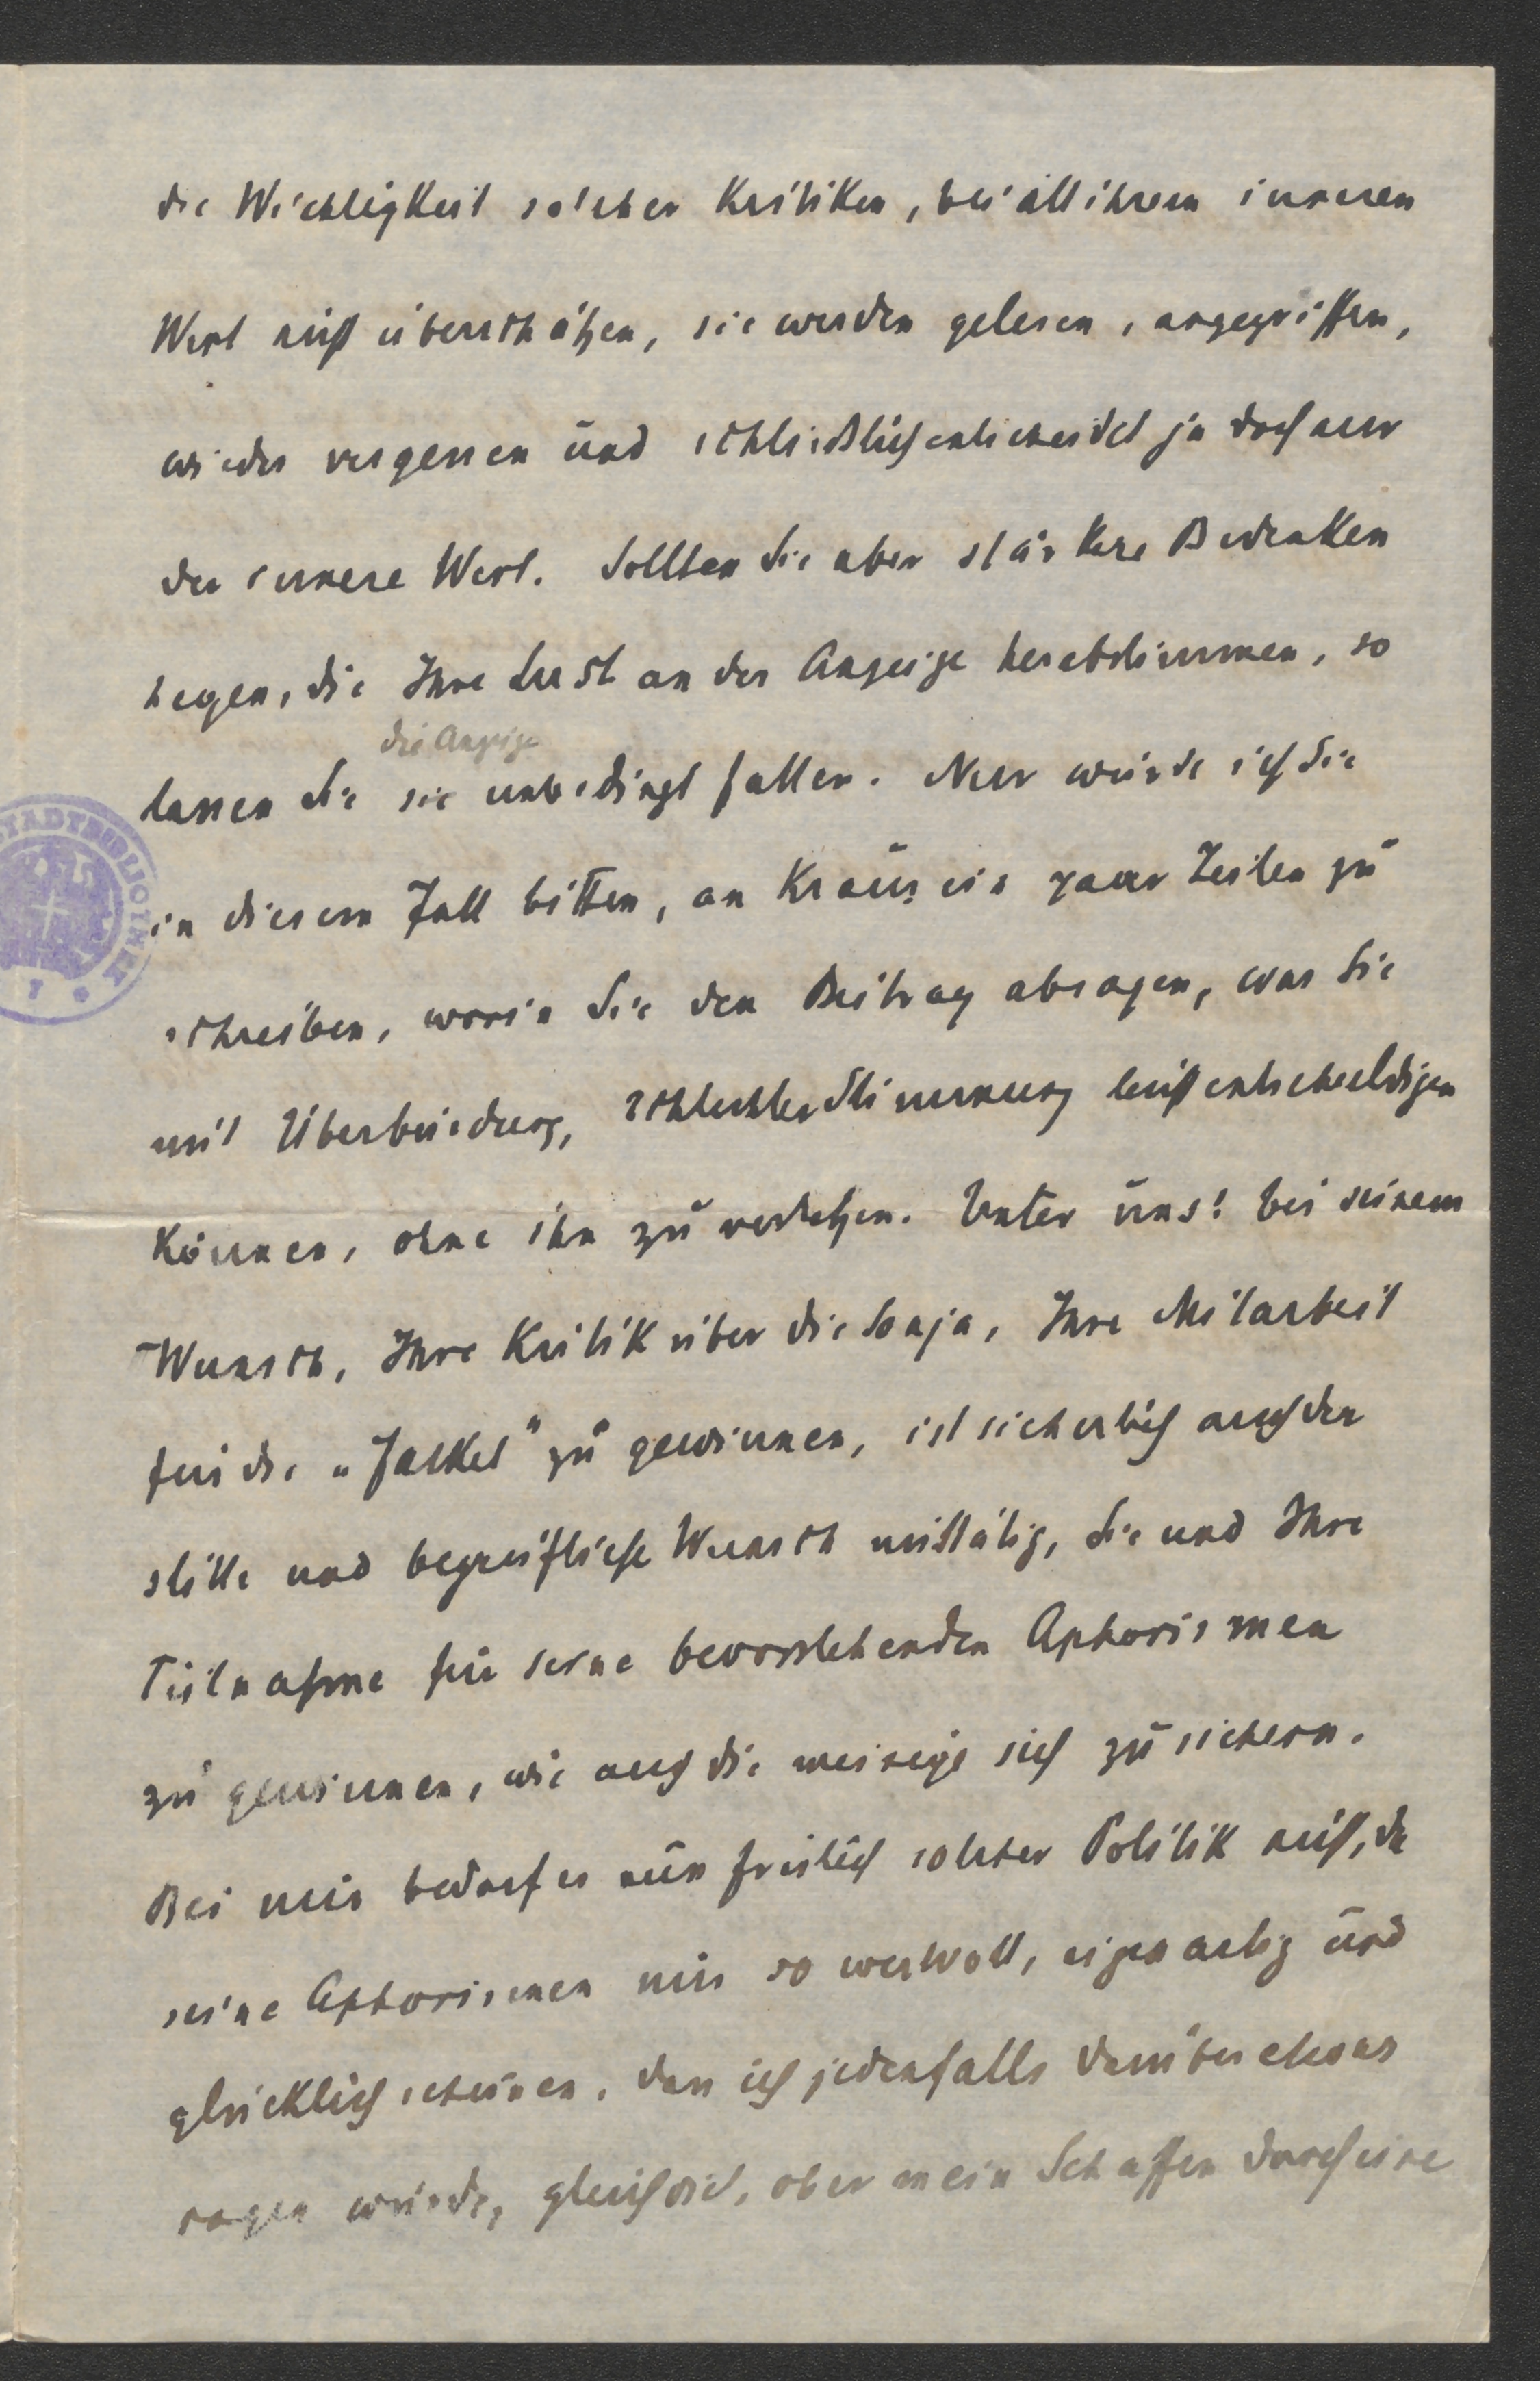 die Wichtigkeit solcher Kritiken, bei all ihrem inneren
Wert nicht überschätzen, sie werden gelesen, angegriffen,
wieder vergessen und schließlich entscheidet ja doch nur
der innere Wert. Sollten Sie aber stärkere Bedenken
hegen, die Ihre Lust an der Anzeige herabstimmen, so
die Anzeige
lassen Sie sie unbedingt fallen. Nur würde ich Sie
in diesem Fall bitten, an Kraus ein paar Zeilen zu
schreiben, worin Sie den Beitrag absagen, was Sie
mit Überbürdung, schlechter Stimmung leicht entschuldigen
können, ohne ihn zu verletzen. Unter uns: bei seinem
Wunsch, Ihre Kritik über die Sonja, Ihre Mitarbeit
für die „Fackel" zu gewinnen, ist sicherlich auch der
stille und begreifliche Wunsch mittätig, Sie und Ihre
Teilnahme für seine bevorstehenden Aphorismen
zu gewinnen, wie auch die meinige sich zu sichern.
Bei mir bedarf es nun freilich solcher Politik nicht, da
seine Aphorismen mir so wertvoll, eigenartig und
glücklich scheinen, dass ich jedenfalls darüber etwas
sagen würde, gleichviel, ob er mein Schaffen durch eine
STADTBIBLIOTHEK